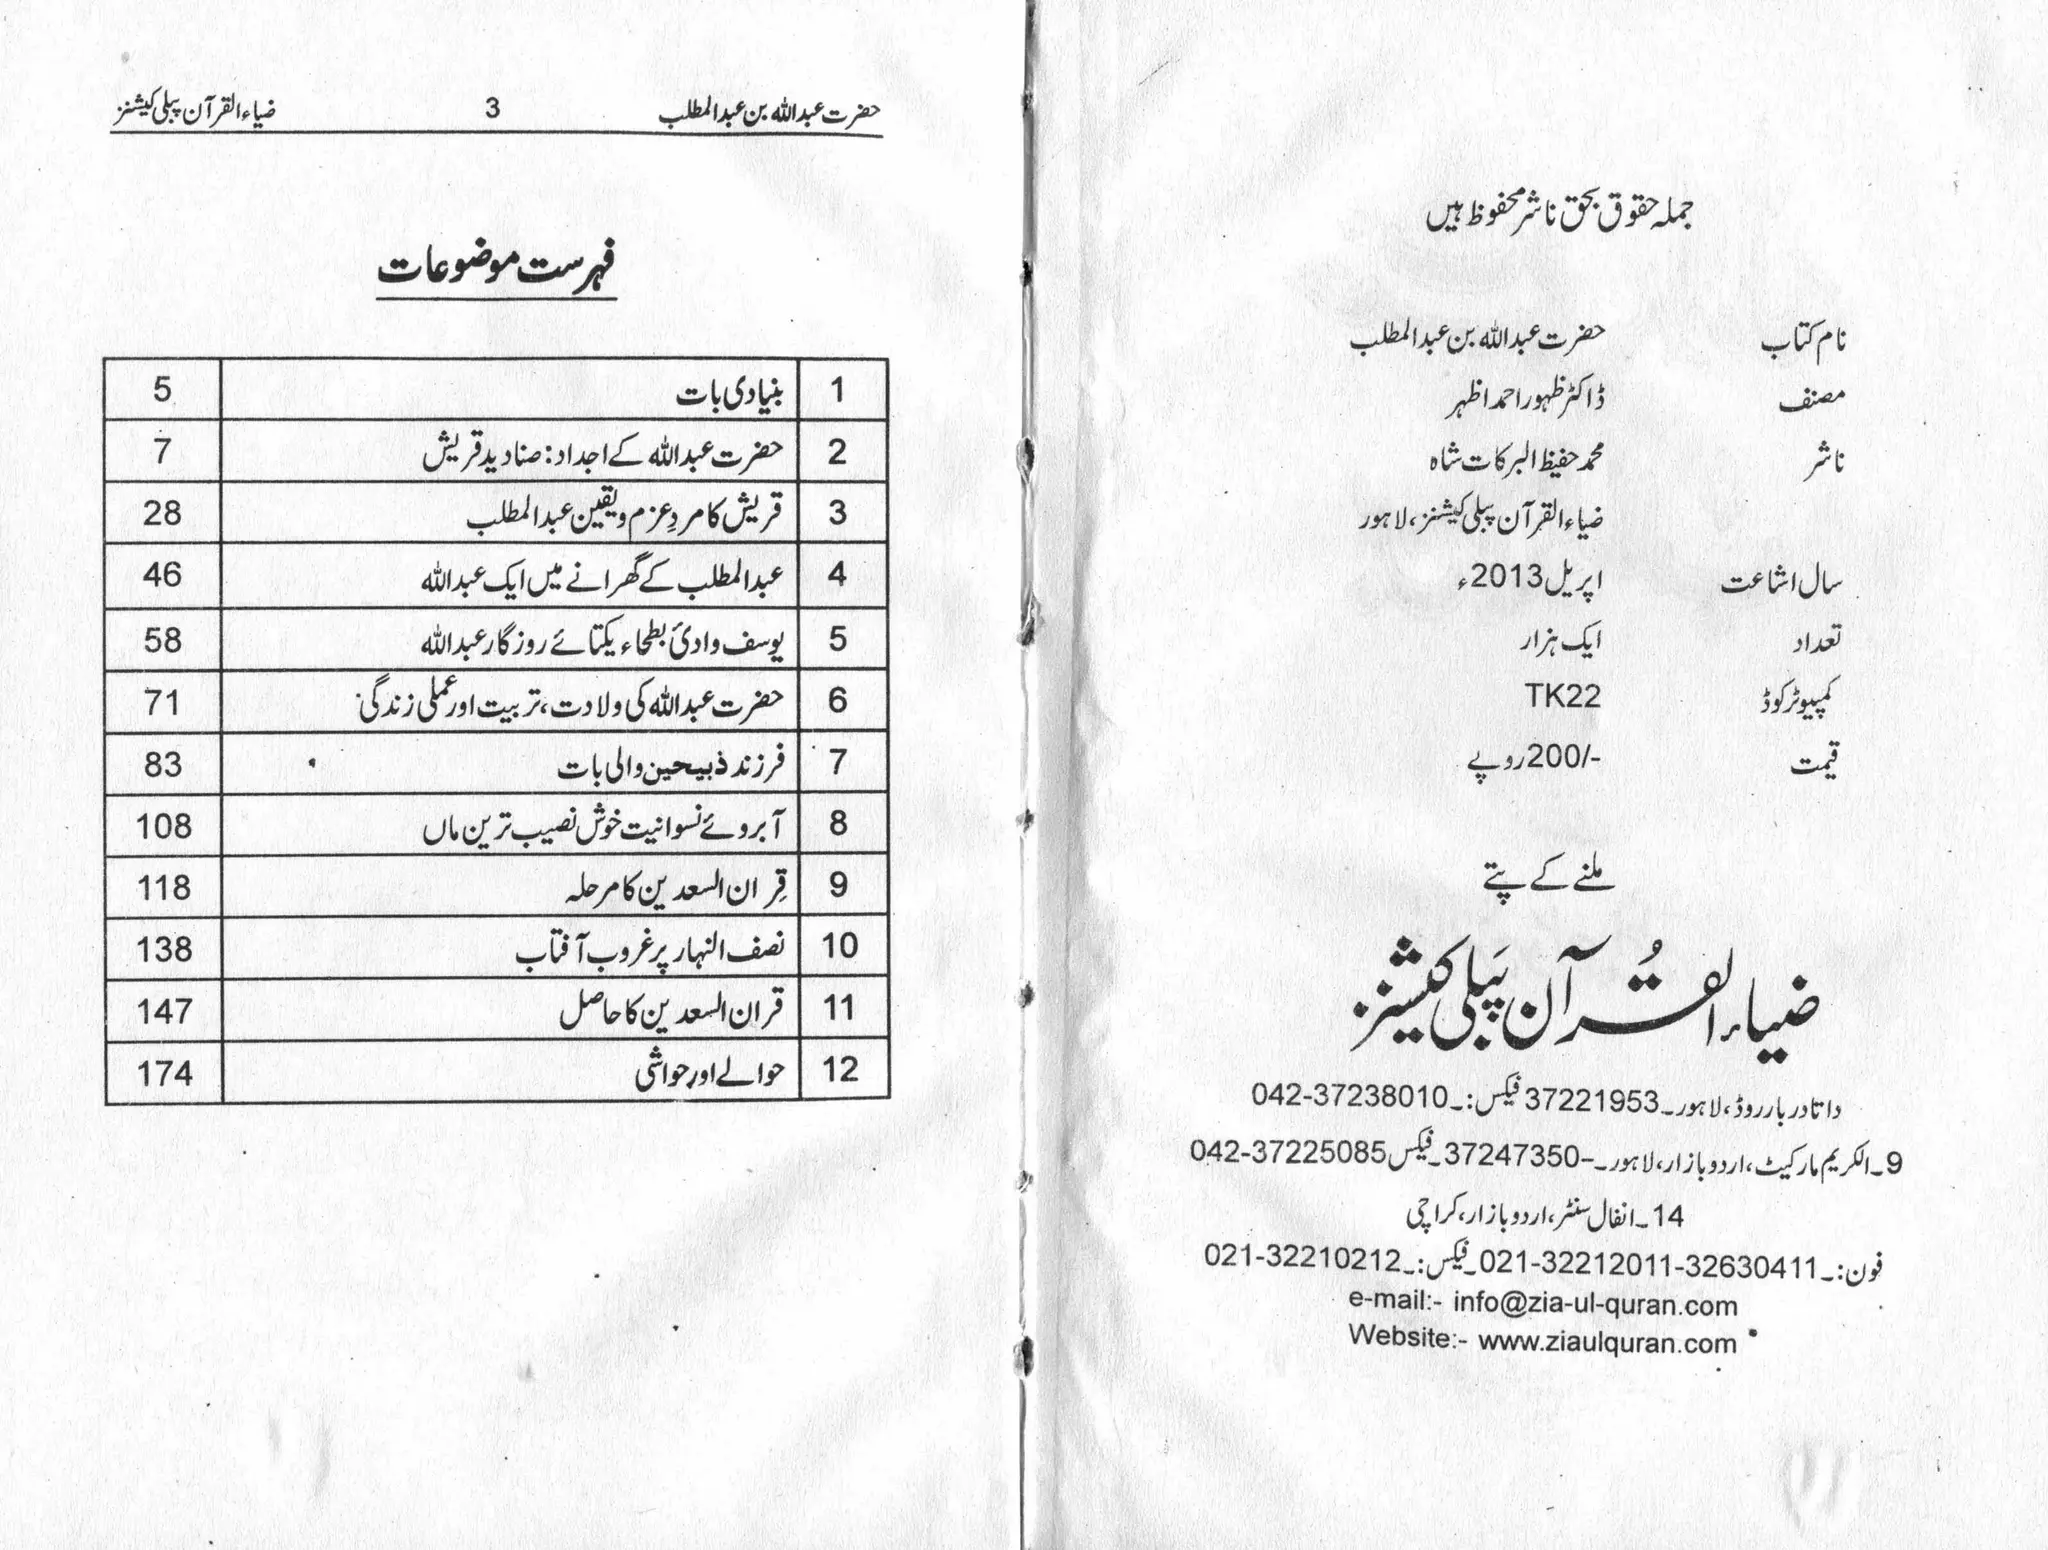 جملہ حقوق بحق ناشر محفوظ ہیں
نام کتاب حضرت عبداللہ بن عبدالمطلب
مصنف ڈاکٹر ظہور احمد اظہر
ناشر محمد حفیظ البرکات شاہ
ضیاء القرآن پبلی کیشنز، لاہور
سال اشاعت اپریل 2013ء
تعداد ایک ہزار
کمپیوٹر کوڈ TK22
قیمت 200/- روپے
ملنے کے پتے
ضیاء القُرآن پَبلی کیشنز
داتا دربار روڈ، لاہور۔ 37221953 فیکس:۔ 042-37238010
9۔الکریم مارکیٹ، اردو بازار، لاہور۔ 37247350-۔ فیکس 042-37225085
14۔انفال سنٹر، اردو بازار، کراچی
فون:۔ 021-32212011-32630411۔ فیکس:۔ 021-32210212
e-mail:- info@zia-ul-quran.com
Website:- www.ziaulquran.com
حضرت عبداللہ بن عبدالمطلب 3 ضیاء القرآن پبلی کیشنز
فہرست موضوعات
1 بنیادی بات 5
2 حضرت عبداللہ کے اجداد: صنادید قریش 7
3 قریش کا مردِ عزم و یقین عبدالمطلب 28
4 عبدالمطلب کے گھرانے میں ایک عبداللہ 46
5 یوسف وادئ بطحاء یکتائے روزگار عبداللہ 58
6 حضرت عبداللہ کی ولادت، تربیت اور عملی زندگی 71
7 فرزند ذبیحین والی بات 83
8 آبروئے نسوانیت خوش نصیب ترین ماں 108
9 قِران السعدین کا مرحلہ 118
10 نصف النہار پر غروب آفتاب 138
11 قران السعدین کا حاصل 147
12 حوالے اور حواشی 174